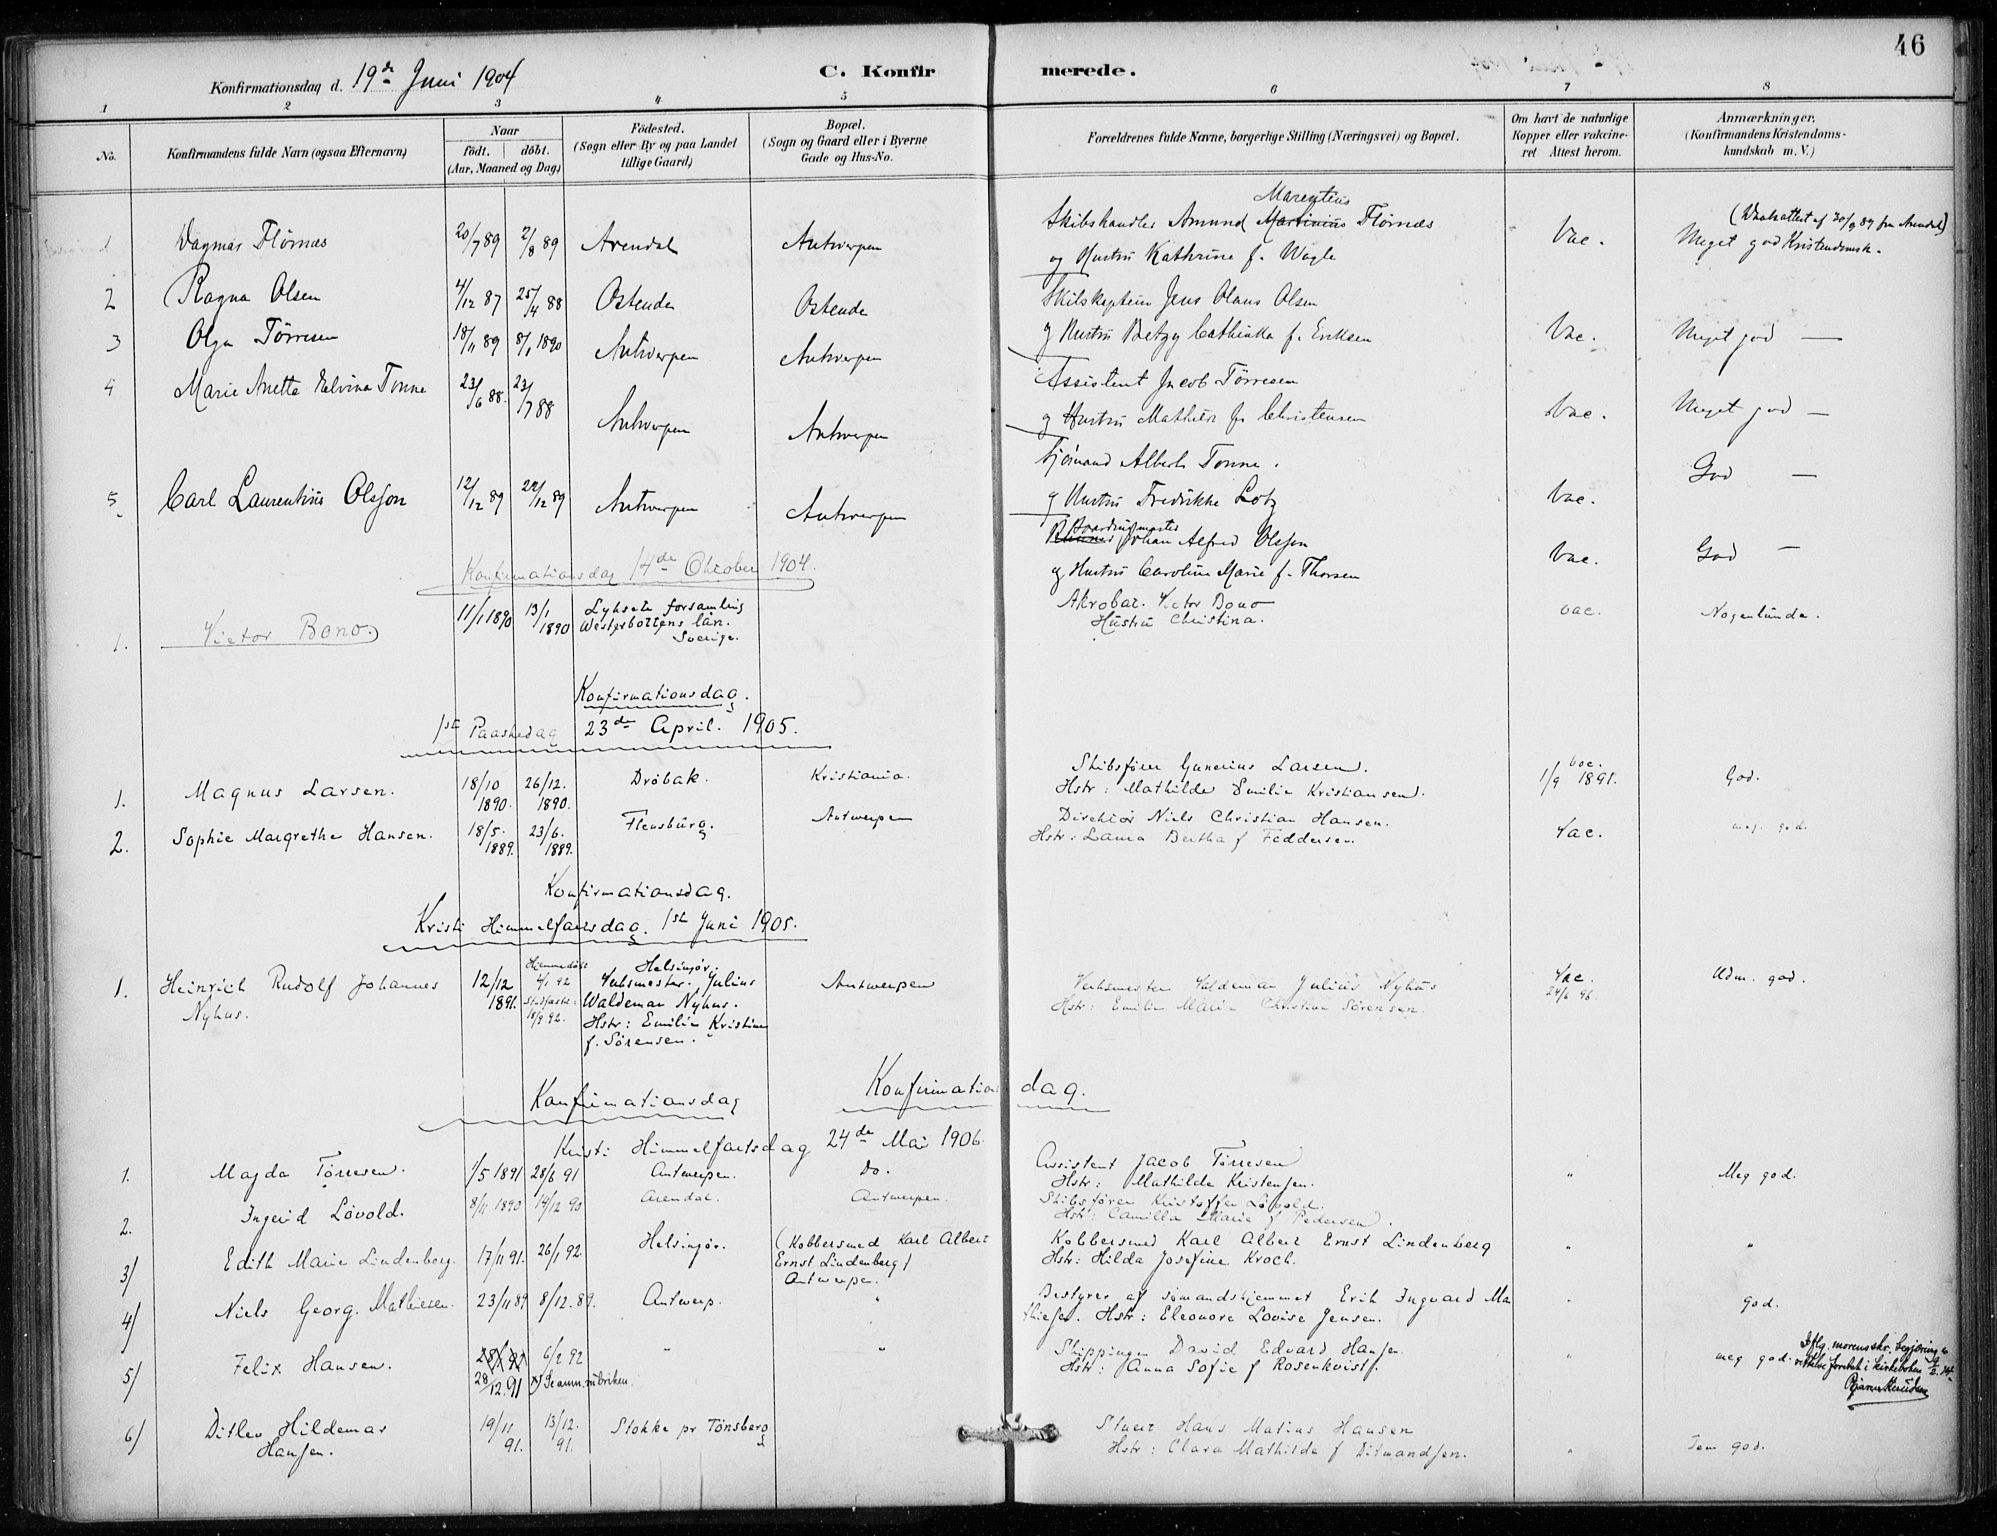 46
Konfirmationsdag d. 19de Juni 1904
C. Konfirmerede.
1 2 3 4 5 6 7 8
No. Konfirmandens fulde Navn (ogsaa Efternavn)
Naar födt. döbt. (Aar, Maaned og Dag)
Födested. (Sogn eller By og paa Landet tillige Gaard)
Bopæl. (Sogn og Gaard eller i Byerne Gade og Hus-No.
Forældrenes fulde Navne, borgerlige Stilling (Næringsvei) og Bopæl.
Om havt de naturlige Kopper eller vakcineret Attest herom.
Anmærkninger. (Konfirmandens Kristendomskundskab m. V.)
1 Dagmar Flörnæs 20/7 89 2/8 89 Arendal Antwerpen
Skibshandler Amund Marentius Martinius Flörnæs
og Hustru Kathrine f. Wagle
Vac. Meget god Kristendomsk.
2 Ragna Olsen 4/12 87 25/4 88 Ostende Ostende
Skibskaptein Jens Olaus Olsen
og Hustru Betzy Cathinka f. Eriksen
Vac. Meget god —
3 Olga Törresen 18/11 89 8/1 1890 Antwerpen Antwerpen
Assistent Jacob Törresen
og Hustru Mathilde f. Christensen
Vac. Meget god —
4 Marie Anette Elvina Tonne 23/6 88. 23/7 88 Antwerpen Antwerpen
Sjömand Albert Tonne.
og Hustru Fredrikke Lotz
Vac. God —
5 Carl Laurentius Olsson 12/12 89 29/12 89 Antwerpen Antwerpen
Boardingmaster Johan Alfred Olsson
og Hustru Caroline Marie f. Thorsen
Vac. God —
Konfirmationsdag 14de Oktober 1904.
1. Victor Bono. 11/1 1890 13/1 1890 Lyksele forsamling Westerbottens län. Sverige.
Akrobat. Victor Bono
Hustru Christina.
vac. Nogenlunde.
Konfirmationsdag.
1st Paaskedag 23de April. 1905.
1. Magnus Larsen. 18/10 1890. 26/12. 1890. Dröbak. Kristiania.
Skibsförer Gunerius Larsen.
Hstr: Mathilde Emilie Kristiansen.
vac. 1/9 1891. God.
2. Sophie Margrethe Hansen. 18/5. 1889. 23/6. 1889. Flensburg. Antwerpen
Direktör Niels Christian Hansen.
Hstr: Laura Bertha f Feddersen.
Vac. meg. god.
Konfirmationsdag.
Kristi Himmelfartsdag. 1st Juni 1905.
1. Heinrich Rudolf Johannes Nyhus. 12/12 1891. Hjemmedöbt 4/1 92 18/9 92.
Helsingör.
Verksmester. Julius
Waldemar Nyhus.
Hstr: Emilie Kristine
f. Sörensen.
Antwerpen
Verksmester Valdemar Julius Nyhus
Hstr: Emilie Marie Christine Sörensen.
Vac. 24/6 96. Udm. god.
Konfirmationsdag Konfirmationsdag.
Kristi Himmelfartsdag 24de Mai 1906.
1. Magda Törresen. 1/5 1891 28/6 91 Antwerpen. Do.
Assistent Jacob Törresen
Hstr: Mathilde Kristensen.
" Meg god.
2. Ingerid Lövold. 8/11 1890 14/12 90 Arendal. Antwerpen.
Skibsförer Kristoffer Lövold.
Hstr: Camilla Marie f Pedersen.
3/ Edith Marie Lindenberg. 17/11 91. 26/1 92. Helsingör.
(Kobbersmed Karl Albert
Ernst Lindenberg)
Antwerpen.
Kobbersmed Karl Albert Ernst Lindenberg
Hstr: Hilda Josefine Kroch.
" "
4/ Niels Georg. Mathiesen. 23/11 89 8/12. 89. Antwerp. "
Bestyrer af Sömandshjemmet Erik Ingvard Ma
thiesen. Hstr: Eleonore Lovise Jensen.
" God.
5/ Felix Hansen. 28/12. 91 6/2 92 x) Se anm. rubriken. " "
Shippingm David Edvard Hansen.
Hstr: Anna Sofie f Rosenkvist.
" meg god.
6/ Ditlev Hildemar Hansen. 19/11 91. 13/12. 91. Stokke pr Tönsberg
Stuert Hans Matius Hansen
Hstr: Clara Mathilde f Ditmandsen.
" Tem god.